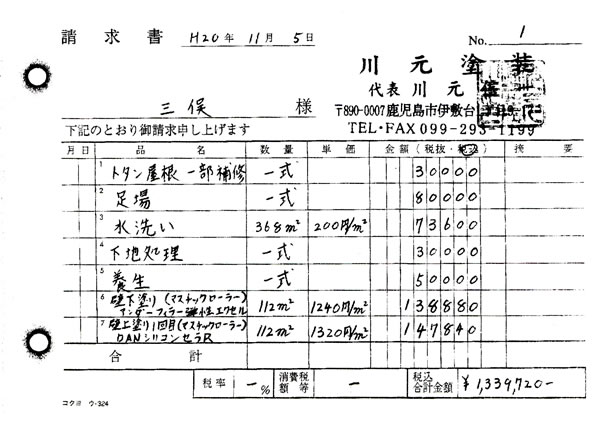 請求書 H20年 11月 5日
No. 1
川元塗装
代表 川元
三俣 様
〒890-0007鹿児島市伊敷台
下記のとおり御請求申し上げます
TEL・FAX 099-293-1199
月日 品名 数量 単価 金額(税抜・税込) 摘要
1 トタン屋根一部補修 一式 30000
2 足場 一式 80000
3 水洗い 368m² 200円/m² 73600
4 下地処理 一式 30000
5 養生 一式 50000
6 壁下塗り(マスチックローラー)
アンダーフィラー弾性エクセル 112m² 1240円/m² 138880
7 壁上塗り1回目(マスチックローラー)
DANシリコンセラR 112m² 1320円/m² 147840
合計
税率 ー% 消費税額等 ー 税込合計金額 ¥1,339,720-
コクヨ ウ-324